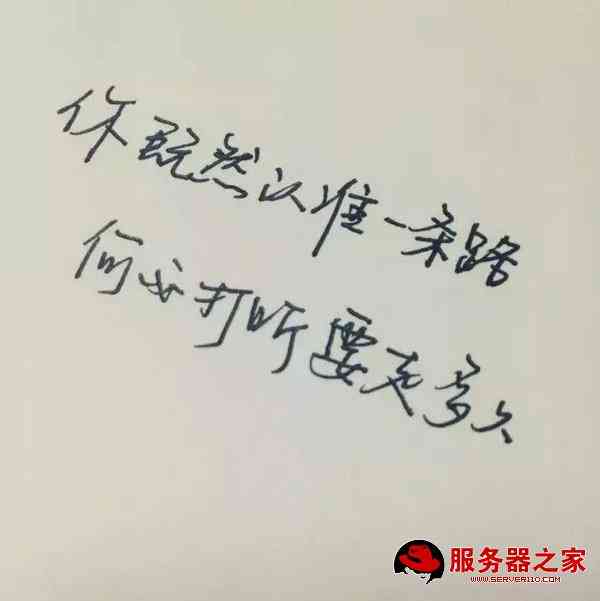 你既然认准一条路
何必打听要走多久
服务器之家
WWW.SERVER110.COM